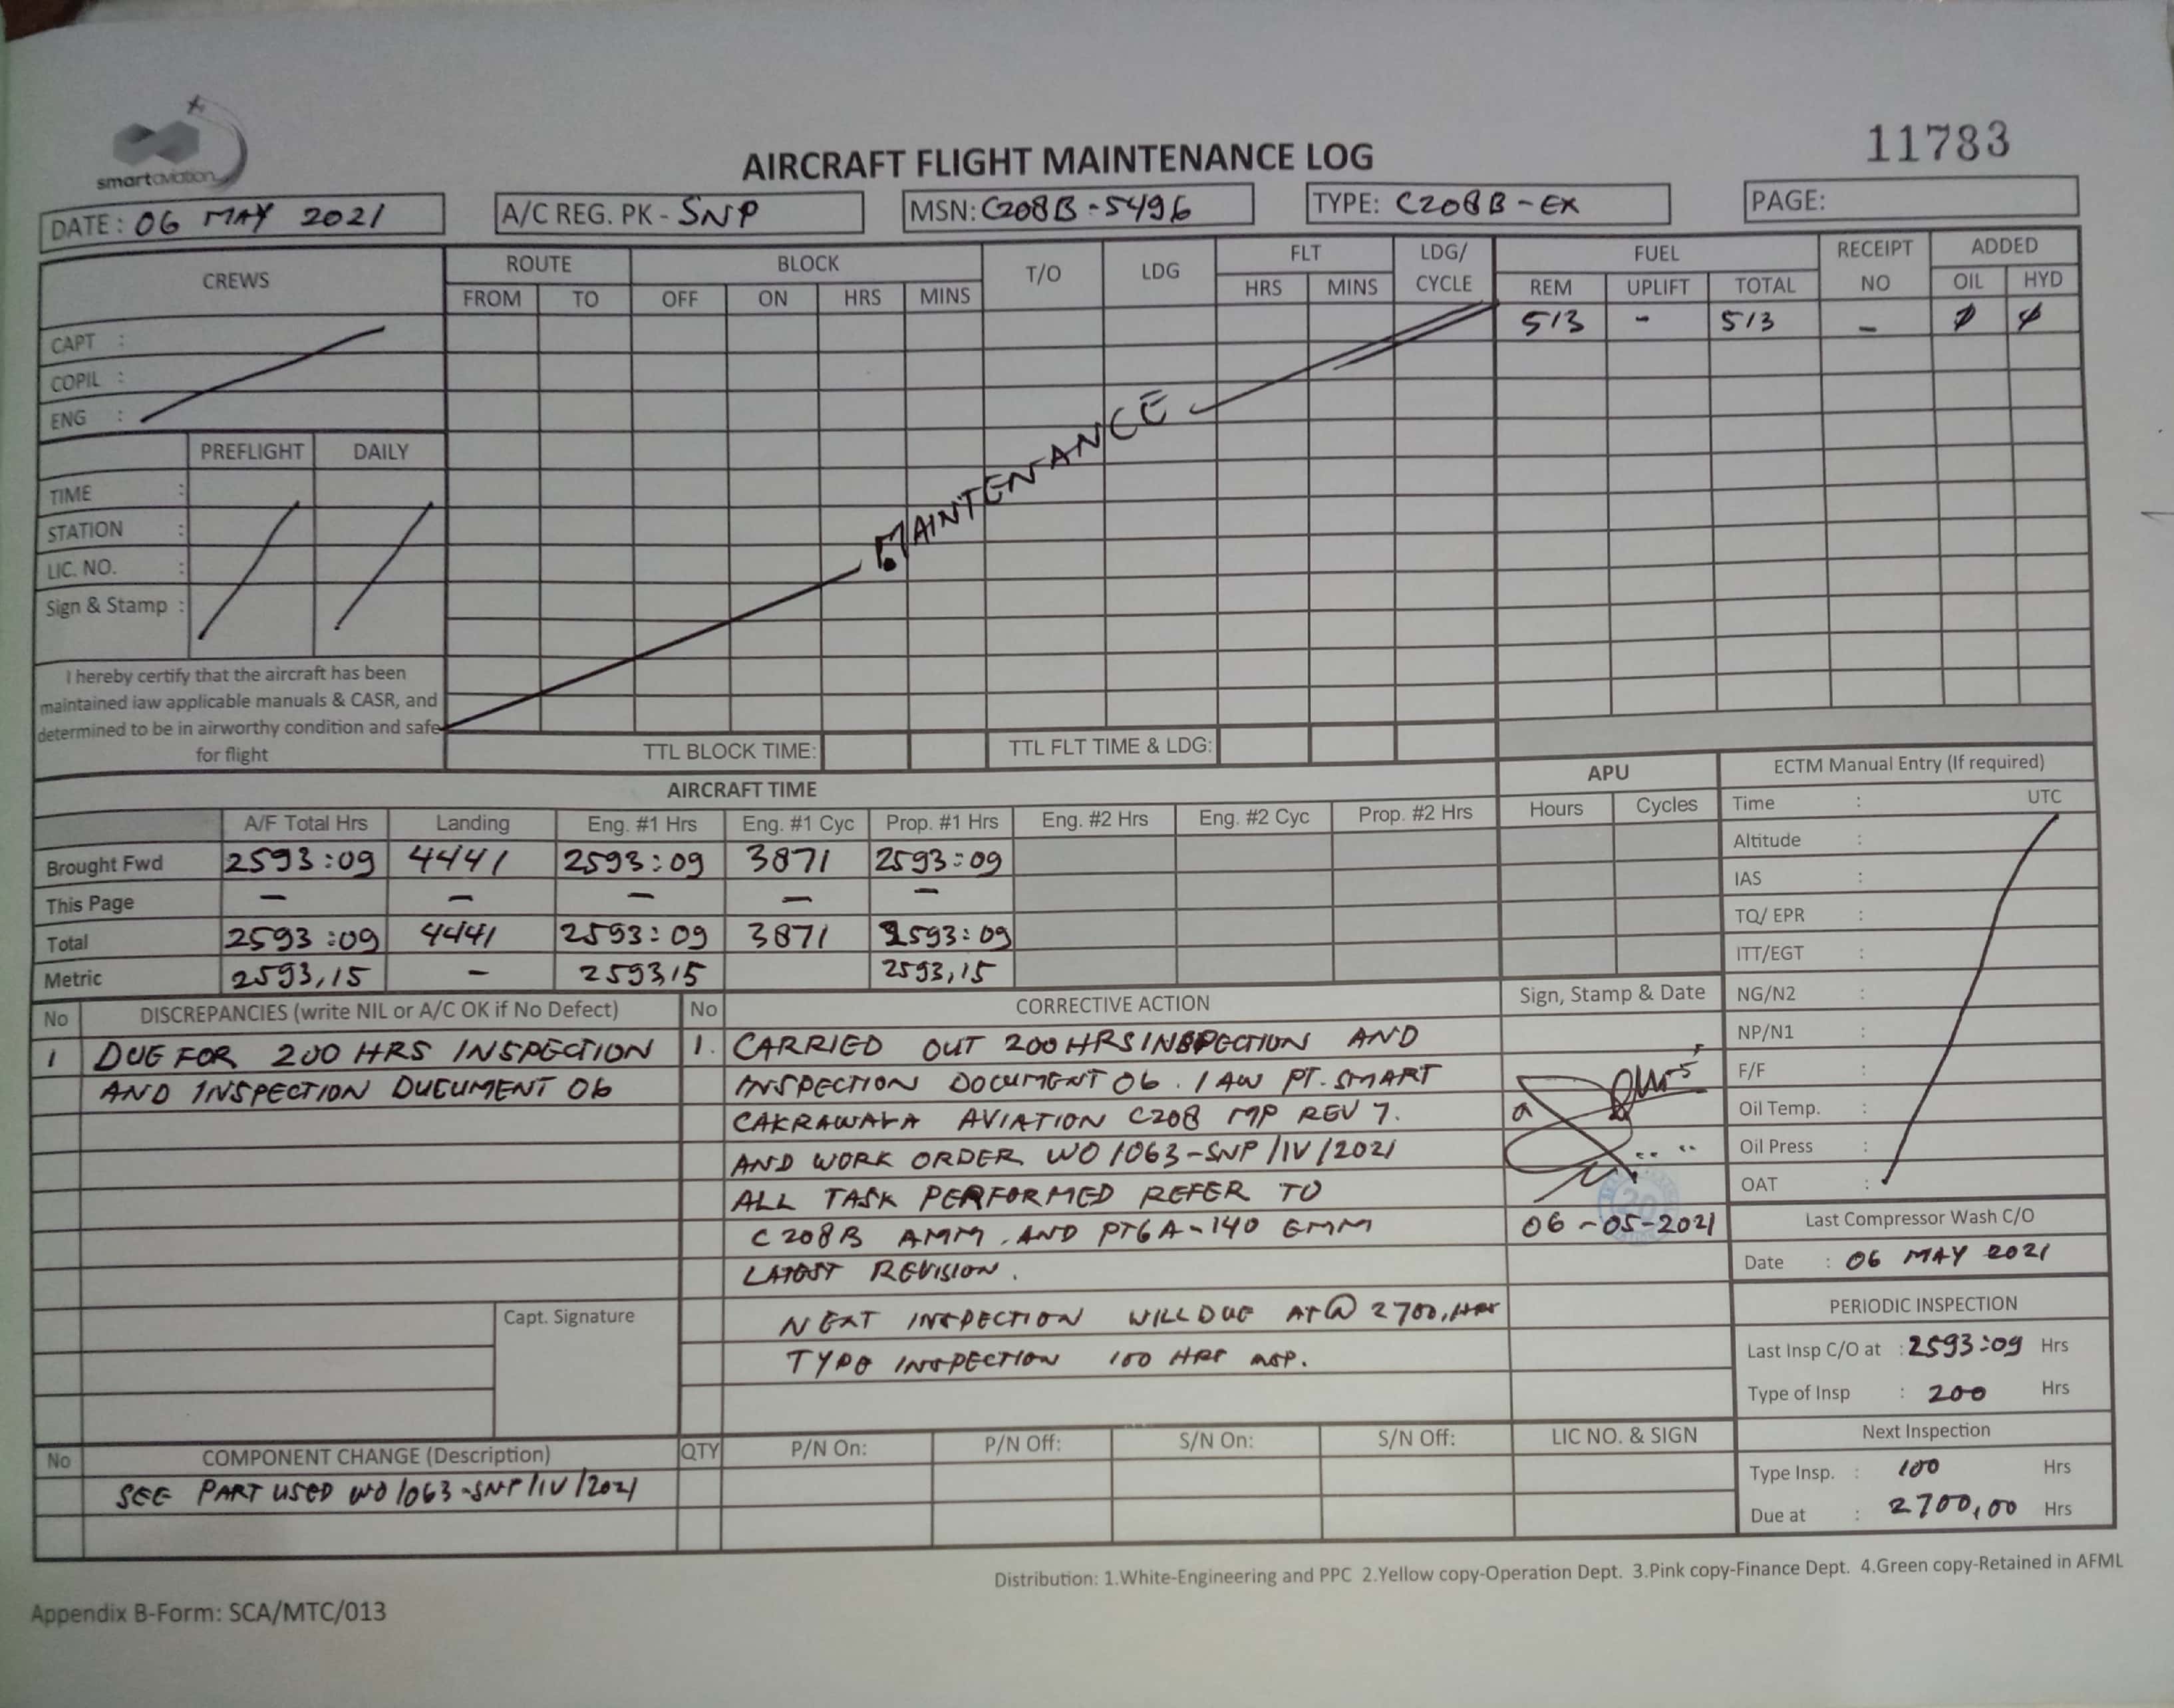 smartaviation
AIRCRAFT FLIGHT MAINTENANCE LOG
11783
DATE : 06 MAY 2021
A/C REG. PK - SNP
MSN: C208B-5496
TYPE: C208B-EX
PAGE:
CREWS
ROUTE BLOCK T/O LDG FLT LDG/ CYCLE FUEL RECEIPT NO ADDED
FROM TO OFF ON HRS MINS HRS MINS REM UPLIFT TOTAL OIL HYD
513 - 513 - Ø Ø
CAPT :
COPIL :
ENG :
PREFLIGHT DAILY
TIME :
STATION :
LIC. NO. :
Sign & Stamp :
MAINTENANCE
I hereby certify that the aircraft has been
maintained iaw applicable manuals & CASR, and
determined to be in airworthy condition and safe
for flight
TTL BLOCK TIME: TTL FLT TIME & LDG:
AIRCRAFT TIME
APU
A/F Total Hrs Landing Eng. #1 Hrs Eng. #1 Cyc Prop. #1 Hrs Eng. #2 Hrs Eng. #2 Cyc Prop. #2 Hrs Hours Cycles
Brought Fwd 2593:09 4441 2593:09 3871 2593:09
This Page - - - - -
Total 2593:09 4441 2593:09 3871 2593:09
Metric 2593,15 - 2593,15 2593,15
ECTM Manual Entry (If required)
Time : UTC
Altitude :
IAS :
TQ/ EPR :
ITT/EGT :
NG/N2 :
NP/N1 :
F/F :
Oil Temp. :
Oil Press :
OAT :
No DISCREPANCIES (write NIL or A/C OK if No Defect)
1 DUE FOR 200 HRS INSPECTION
AND INSPECTION DUCUMENT 06
Capt. Signature
No CORRECTIVE ACTION
1. CARRIED OUT 200 HRS INSPECTION AND
INSPECTION DOCUMENT 06. IAW PT. SMART
CAKRAWALA AVIATION C208 MP REV 7.
AND WORK ORDER WO/063-SNP/IV/2021
ALL TASK PERFORMED REFER TO
C208B AMM. AND PT6A-140 EMM
LATEST REVISION.
NEXT INSPECTION WILL DUE AT @ 2700, HRS
TYPE INSPECTION 100 HRS INSP.
Sign, Stamp & Date
06-05-2021
Last Compressor Wash C/O
Date : 06 MAY 2021
PERIODIC INSPECTION
Last Insp C/O at : 2593:09 Hrs
Type of Insp : 200 Hrs
Next Inspection
Type Insp. : 100 Hrs
Due at : 2700,00 Hrs
No COMPONENT CHANGE (Description) QTY P/N On: P/N Off: S/N On: S/N Off: LIC NO. & SIGN
SEE PART USED WO/063-SNP/IV/2021
Distribution: 1.White-Engineering and PPC 2.Yellow copy-Operation Dept. 3.Pink copy-Finance Dept. 4.Green copy-Retained in AFML
Appendix B-Form: SCA/MTC/013